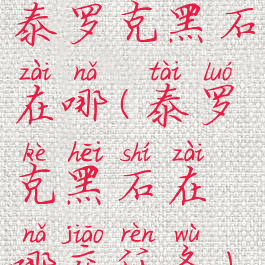 泰罗克黑石
zài nǎ tài luó
在哪(泰罗
kè hēi shí zài
克黑石在
nǎ jiāo rèn wù
哪